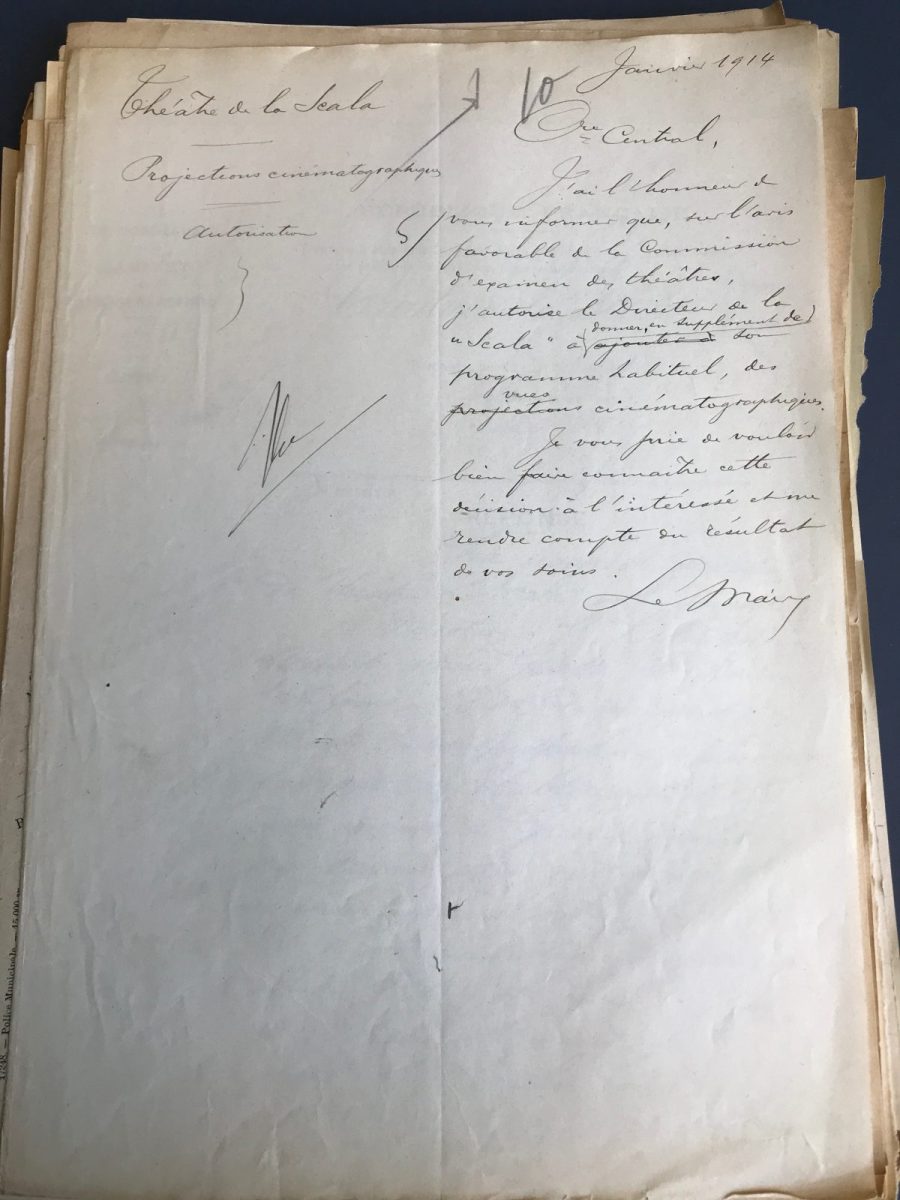 Théâtre de la Scala
Projections cinématographiques
autorisation
10
Janvier 1914
Cre Central,
J'ai l'honneur de
vous informer que, sur l'avis
favorable de la Commission
d'examen des théâtres,
j'autorise le Directeur de la
donner, en supplément de
"Scala" à ajouter à son
programme habituel, des
vues
projections cinématographiques.
Je vous prie de vouloir
bien faire connaître cette
décision à l'intéressé et me
rendre compte du résultat
de vos soins.
Le Maire
17248. — Police Municipale — 15.000